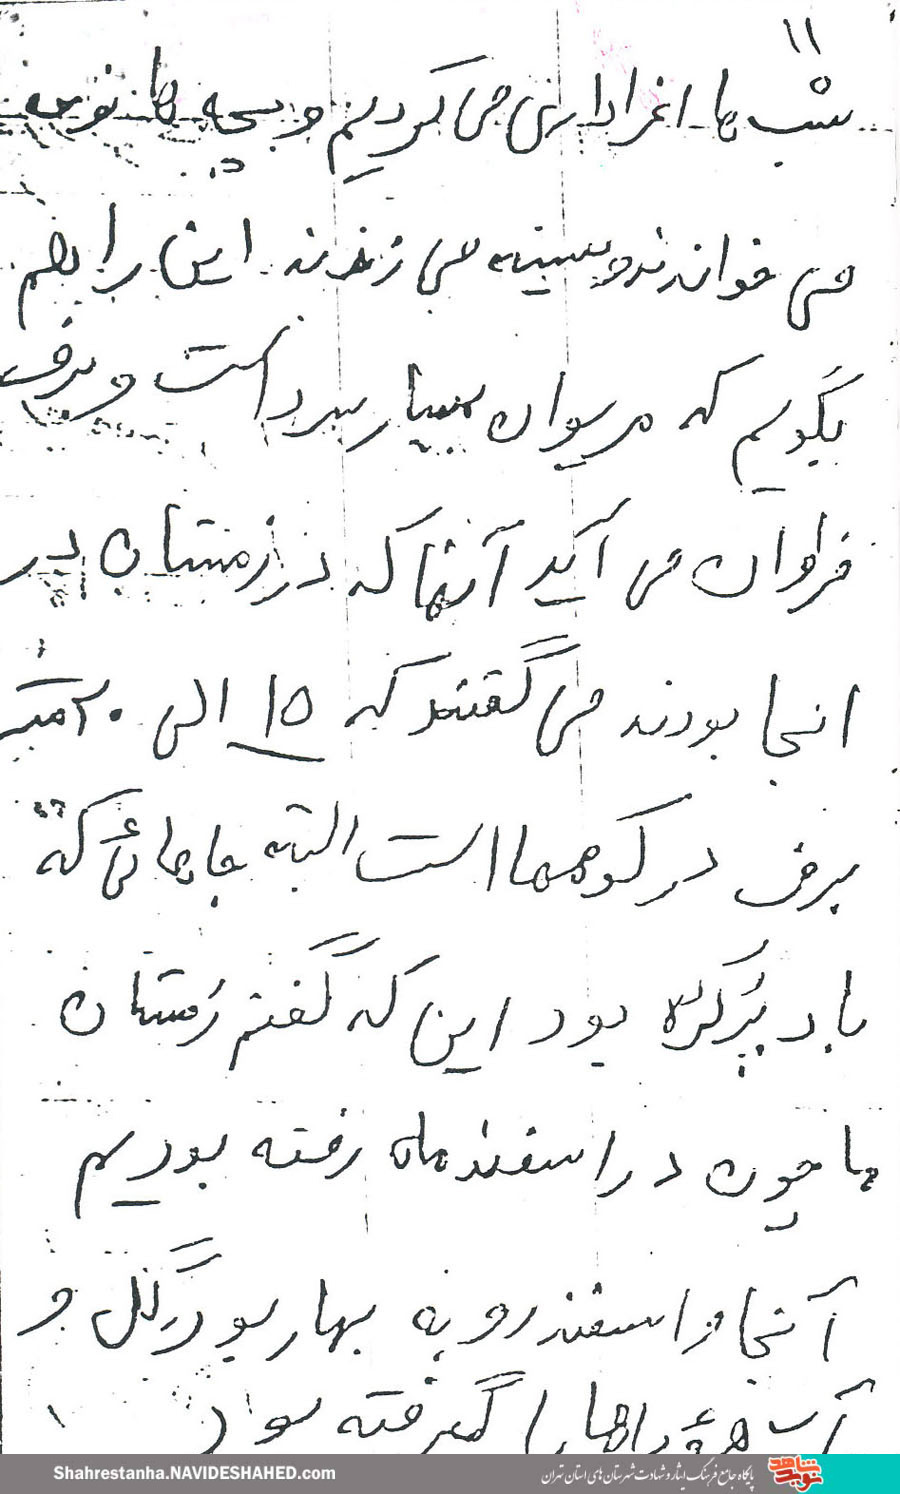 ۱۱
شب ها اعزاداری می کردیم و بچه ها نوحه
می خواندند و سینه می زندند این را بهم
بگویم که مریوان بسیار سرد است و برف
فراوان می آید آنها که در زمستان در
انجا بودند می گفتند که ۱۵ الی ۲۰ متر
برف در کوهها است البته جاهائی که
باد پرکرده بود این که گفتم زمستان
ما چون در اسفند ماه رفته بودیم
آنجا و اسفند رو به بهار بود گل و
آب همۀ راهها را گرفته بود
Shahrestanha.NAVIDESHAHED.com
پایگاه جامع فرهنگ ایثار و شهادت شهرستان های استان تهران
نوید شاهد